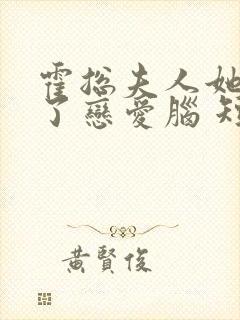 霍總夫人她
了戀愛腦 短
黃賢俊